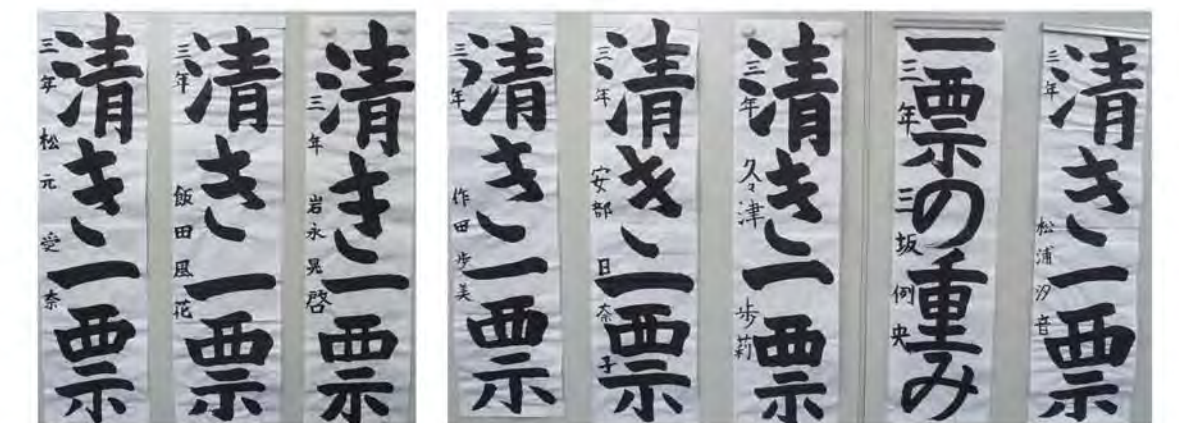 清き一票
三年 松元愛奈
清き一票
三年 飯田風花
清き一票
三年 岩永晃啓
清き一票
三年 作田歩美
清き一票
三年 安部日奈子
清き一票
三年 久々津歩莉
一票の重み
三年 三坂例央
清き一票
三年 松浦汐音